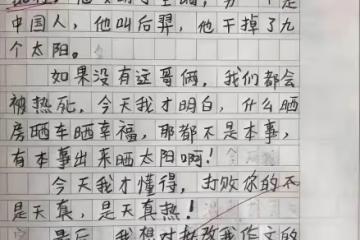 中国人，他叫后羿，他干掉了九
个太阳。
如果没有这哥俩，我们都会
被热死，今天我才明白，什么晒
房晒车晒幸福，那都不是本事，
有本事出来晒太阳啊！
今天我才懂得，打败你的不
是天真，是天真热！
最后，我想对批改我作文的